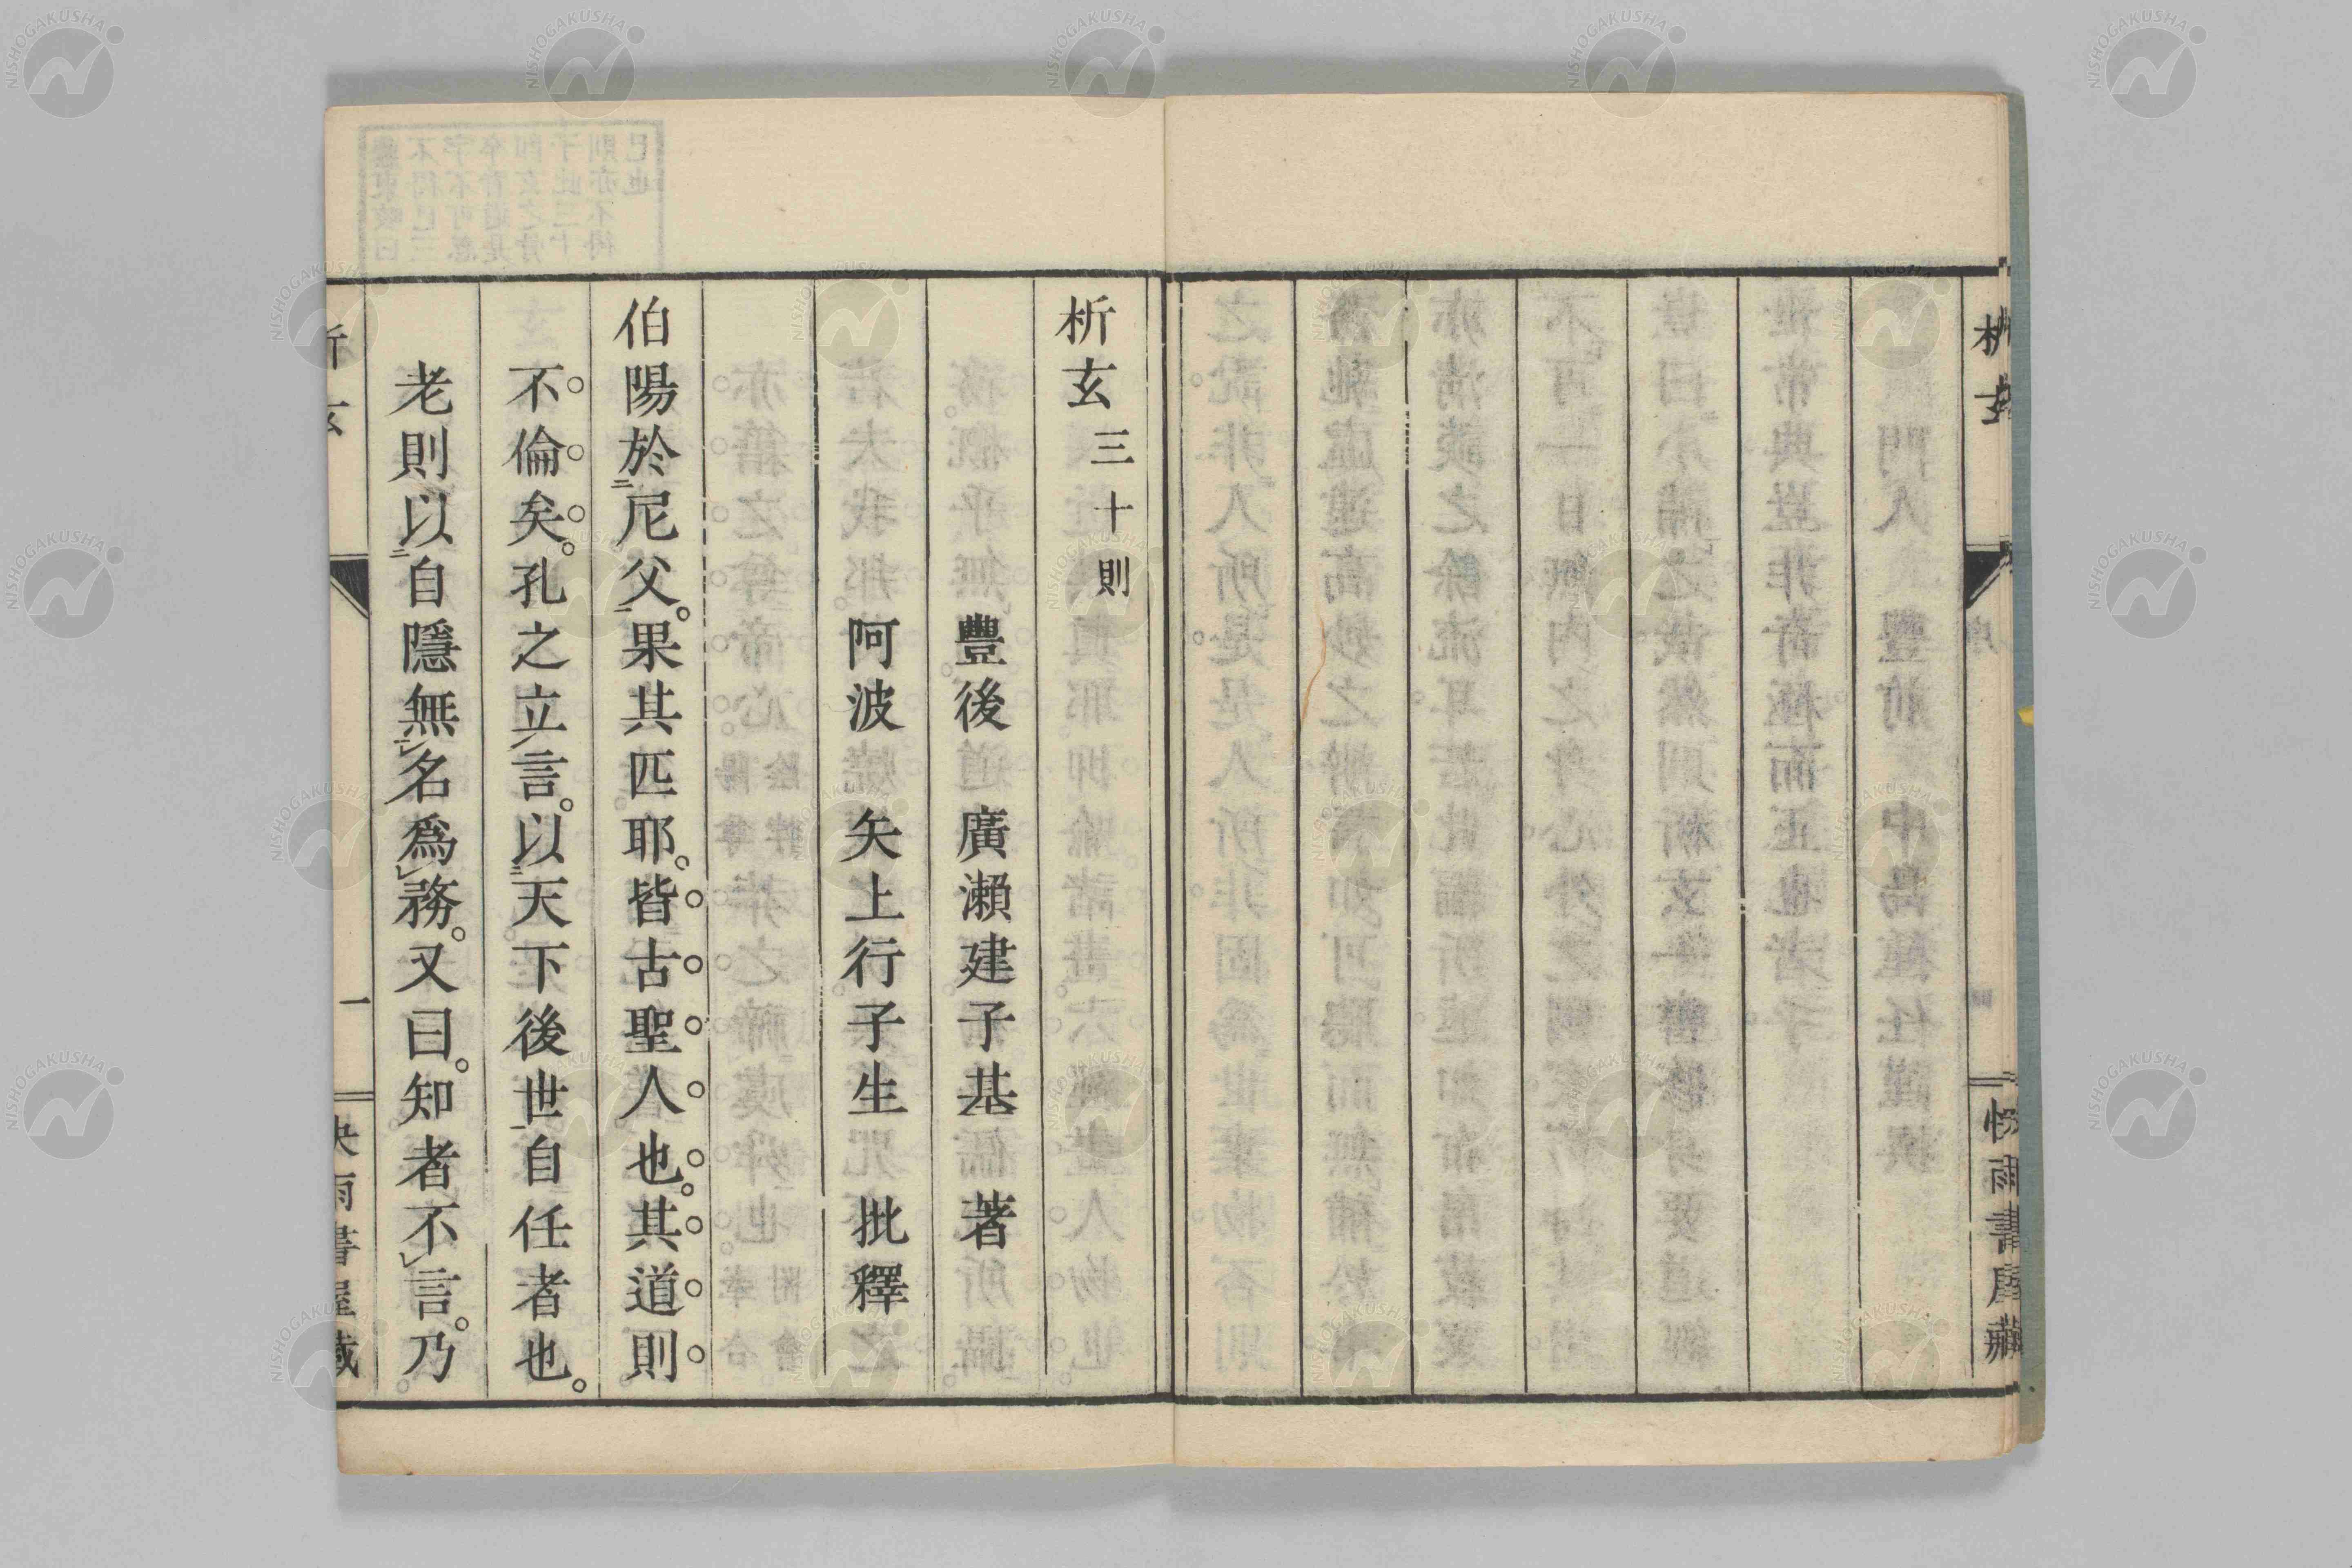 析玄
快雨書屋藏
析玄三十則
豐後　廣瀬建子基　著
阿波　矢上行子生　批釋
伯陽於尼父。果其匹耶。皆古聖人也。其道則
不倫矣。孔之立言。以天下後世自任者也。
老則以自隱無名爲務。又曰。知者不言。乃
析玄
一
快雨書屋藏
NISHOGAKUSHA